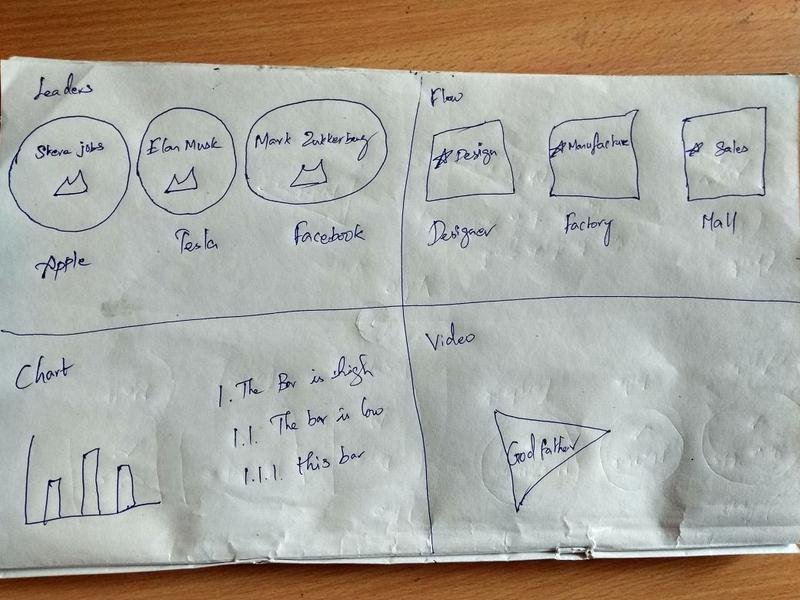 Leaders
Steve jobs
Elan Musk
Mark Zukkerburg
Apple
Tesla
Facebook
Flow
Design
Manufacture
Sales
Designer
Factory
Mall
Chart
1. The Bar is high
1.1. The bar is low
1.1.1. this bar
Video
God father